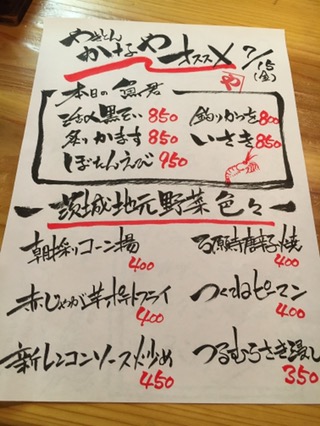 やきとん
かなや オススメ 7/15(金)
や
本日の魚君
活〆黒むつ 850 釣りかつを 800
炙りかます 850 いさき 850
ぼたんえび 950
茨城地元野菜色々
朝採りコーン揚 400
万願寺唐辛子焼 400
赤じゃが芋ポテトフライ 400
つくねピーマン 400
新レンコンソース炒め 450
つるむらさき浸し 350